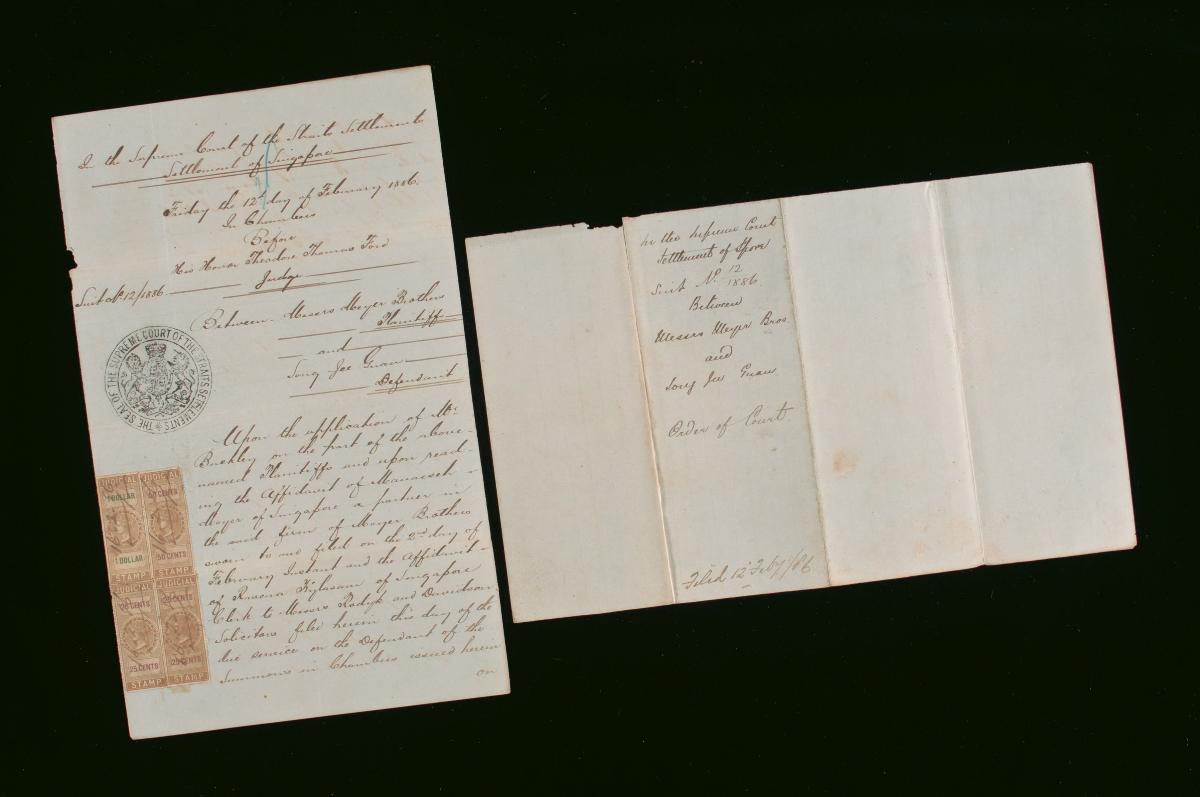 In the Supreme Court of the Straits Settlements
Settlement of Singapore
Friday the 12th day of February 1886.
In Chambers
Before
His Honor Theodore Thomas Ford
Judge
Suit No. 12/1886
Between Messrs Meyer Brothers
Plaintiff
and
Song Jee Guan
Defendant
THE SEAL OF THE SUPREME COURT OF THE STRAITS SETTLEMENTS
Upon the application of Mr.
Buckley on the part of the above-
named Plaintiffs and upon read-
ing the Affidavit of Manasseh
Meyer of Singapore a partner in
the said firm of Meyer Brothers
sworn to and filed on the 2nd day of
February Instant and the Affidavit
of Kylasam of Singapore
Clerk to Messrs Rodyk and Davidson
Solicitors filed herein this day of the
due service on the Defendant of the
Summons in Chambers issued herein
on
JUDICIAL
1 DOLLAR
1 DOLLAR
STAMP
JUDICIAL
50 CENTS
50 CENTS
STAMP
JUDICIAL
25 CENTS
25 CENTS
STAMP
JUDICIAL
25 CENTS
25 CENTS
STAMP
In the Supreme Court
Settlement of Spore
Suit No. 12/1886
Between
Messrs Meyer Bros.
and
Song Jee Guan
Order of Court.
Filed 12 Feby /86